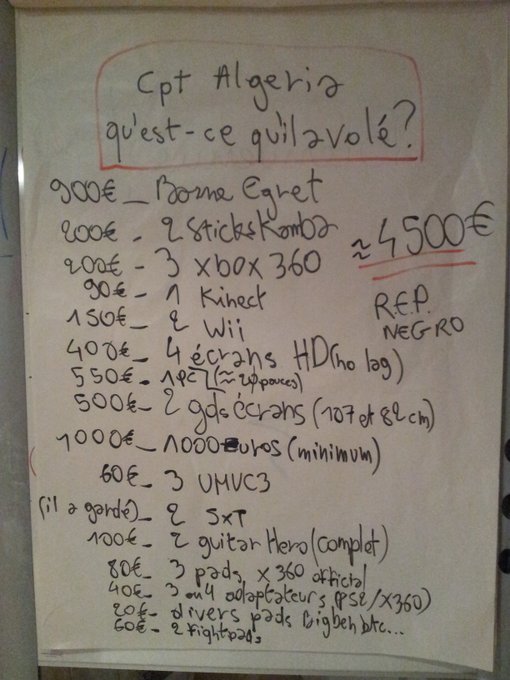 Cpt Algeria
qu'est-ce qu'il a volé?
900€ _ Borne Egret
200€ - 2 Sticks Komba
200€ - 3 xbox 360
90€ - 1 Kinect
150€ - 2 Wii
400€ - 4 écrans HD (no lag)
550€ - 1 PC (≈ pouces)
500€ - 2 gds écrans (107 et 82 cm)
1000€ _ 1000 Euros (minimum)
60€ - 3 UMVC3
(il a gardé) _ 2 SxT
100€ - 2 guitar Hero (complet)
80€ - 3 pads x360 official
40€ - 3 ou 4 adaptateurs (PS2/X360)
20€ - divers pads Bigben etc...
60€ - 2 fightpads
≈ 4500€
R.E.P.
NEGRO